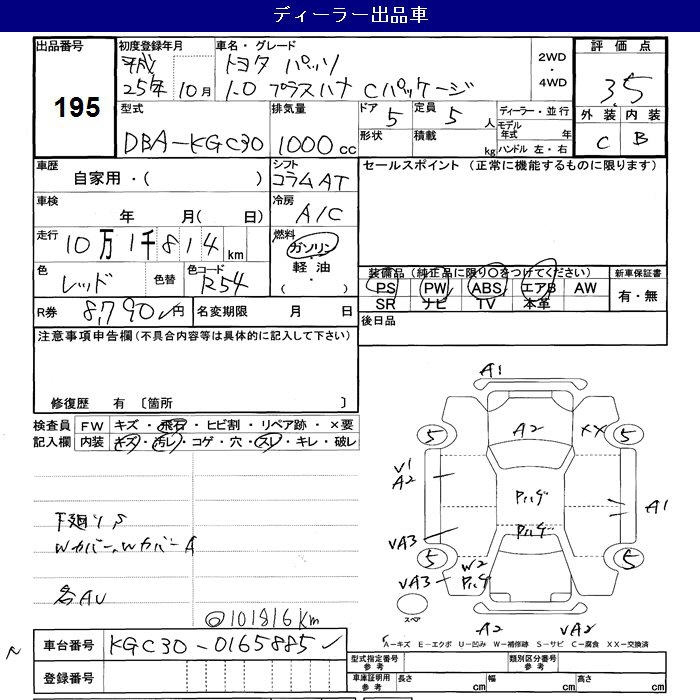 ディーラー出品車
出品番号 195
初度登録年月 平成 25年 10月
車名・グレード トヨタ パッソ
1.0 プラスハナ Cパッケージ
2WD ・ 4WD
評価点 3.5
外装 内装
C B
型式 DBA-KGC30
排気量 1000 cc
ドア 5 定員 5 人
形状 積載 kg
ディーラー・並行
モデル年式 年
ハンドル 左・右
車歴 自家用・( )
シフト コラムAT
セールスポイント (正常に機能するものに限ります)
車検 年 月( 日)
冷房 A/C
走行 10万1千814 km
燃料 ガソリン・軽油・( )
色 レッド 色替 色コード R54
装備品(純正品に限り○をつけてください) 新車保証書
PS PW ABS エアB AW 有・無
SR ナビ TV 本革
R券 8,790円 名変期限 月 日
後日品
注意事項申告欄(不具合内容等は具体的に記入して下さい)
修復歴 有 〔箇所 〕
検査員 FW キズ・飛石・ヒビ割・リペア跡・×要
記入欄 内装 キズ・汚レ・コゲ・穴・スレ・キレ・破レ
A1
5 A2 XX 5
V1
A2
Pハゲ
A1
Pハゲ
VA3
5 W2 5
VA3 Pハゲ
スペア
A2 VA2
下廻りS
Wカバー、WカバーA
名AU
◎101816Km
A-キズ E-エクボ U-凹み W-補修跡 S-サビ C-腐食 XX-交換済
車台番号 KGC30-0165885
登録番号
型式指定番号 参考 類別区分番号 参考
車庫証明用 参考 長さ cm 幅 cm 高さ cm